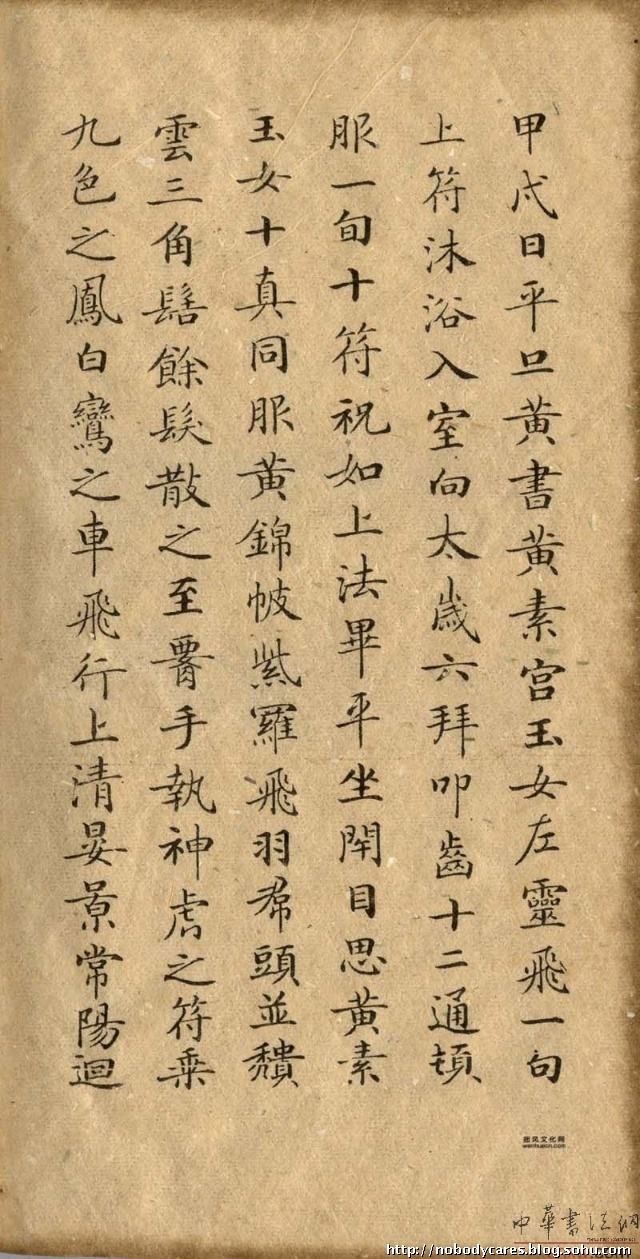 甲戌日平旦黄書黄素宫玉女左靈飛一旬
上符沐浴入室向太歲六拜叩齒十二通頓
服一旬十符祝如上法畢平坐閇目思黄素
玉女十真同服黄錦帔紫羅飛羽帬頭並頽
雲三角髻餘髮散之至署手執神虎之符乗
九色之鳳白鸞之車飛行上清晏景常陽迴
書风文化网
wenhuacn.com
中華書法網
http://nobodycares.blog.sohu.com